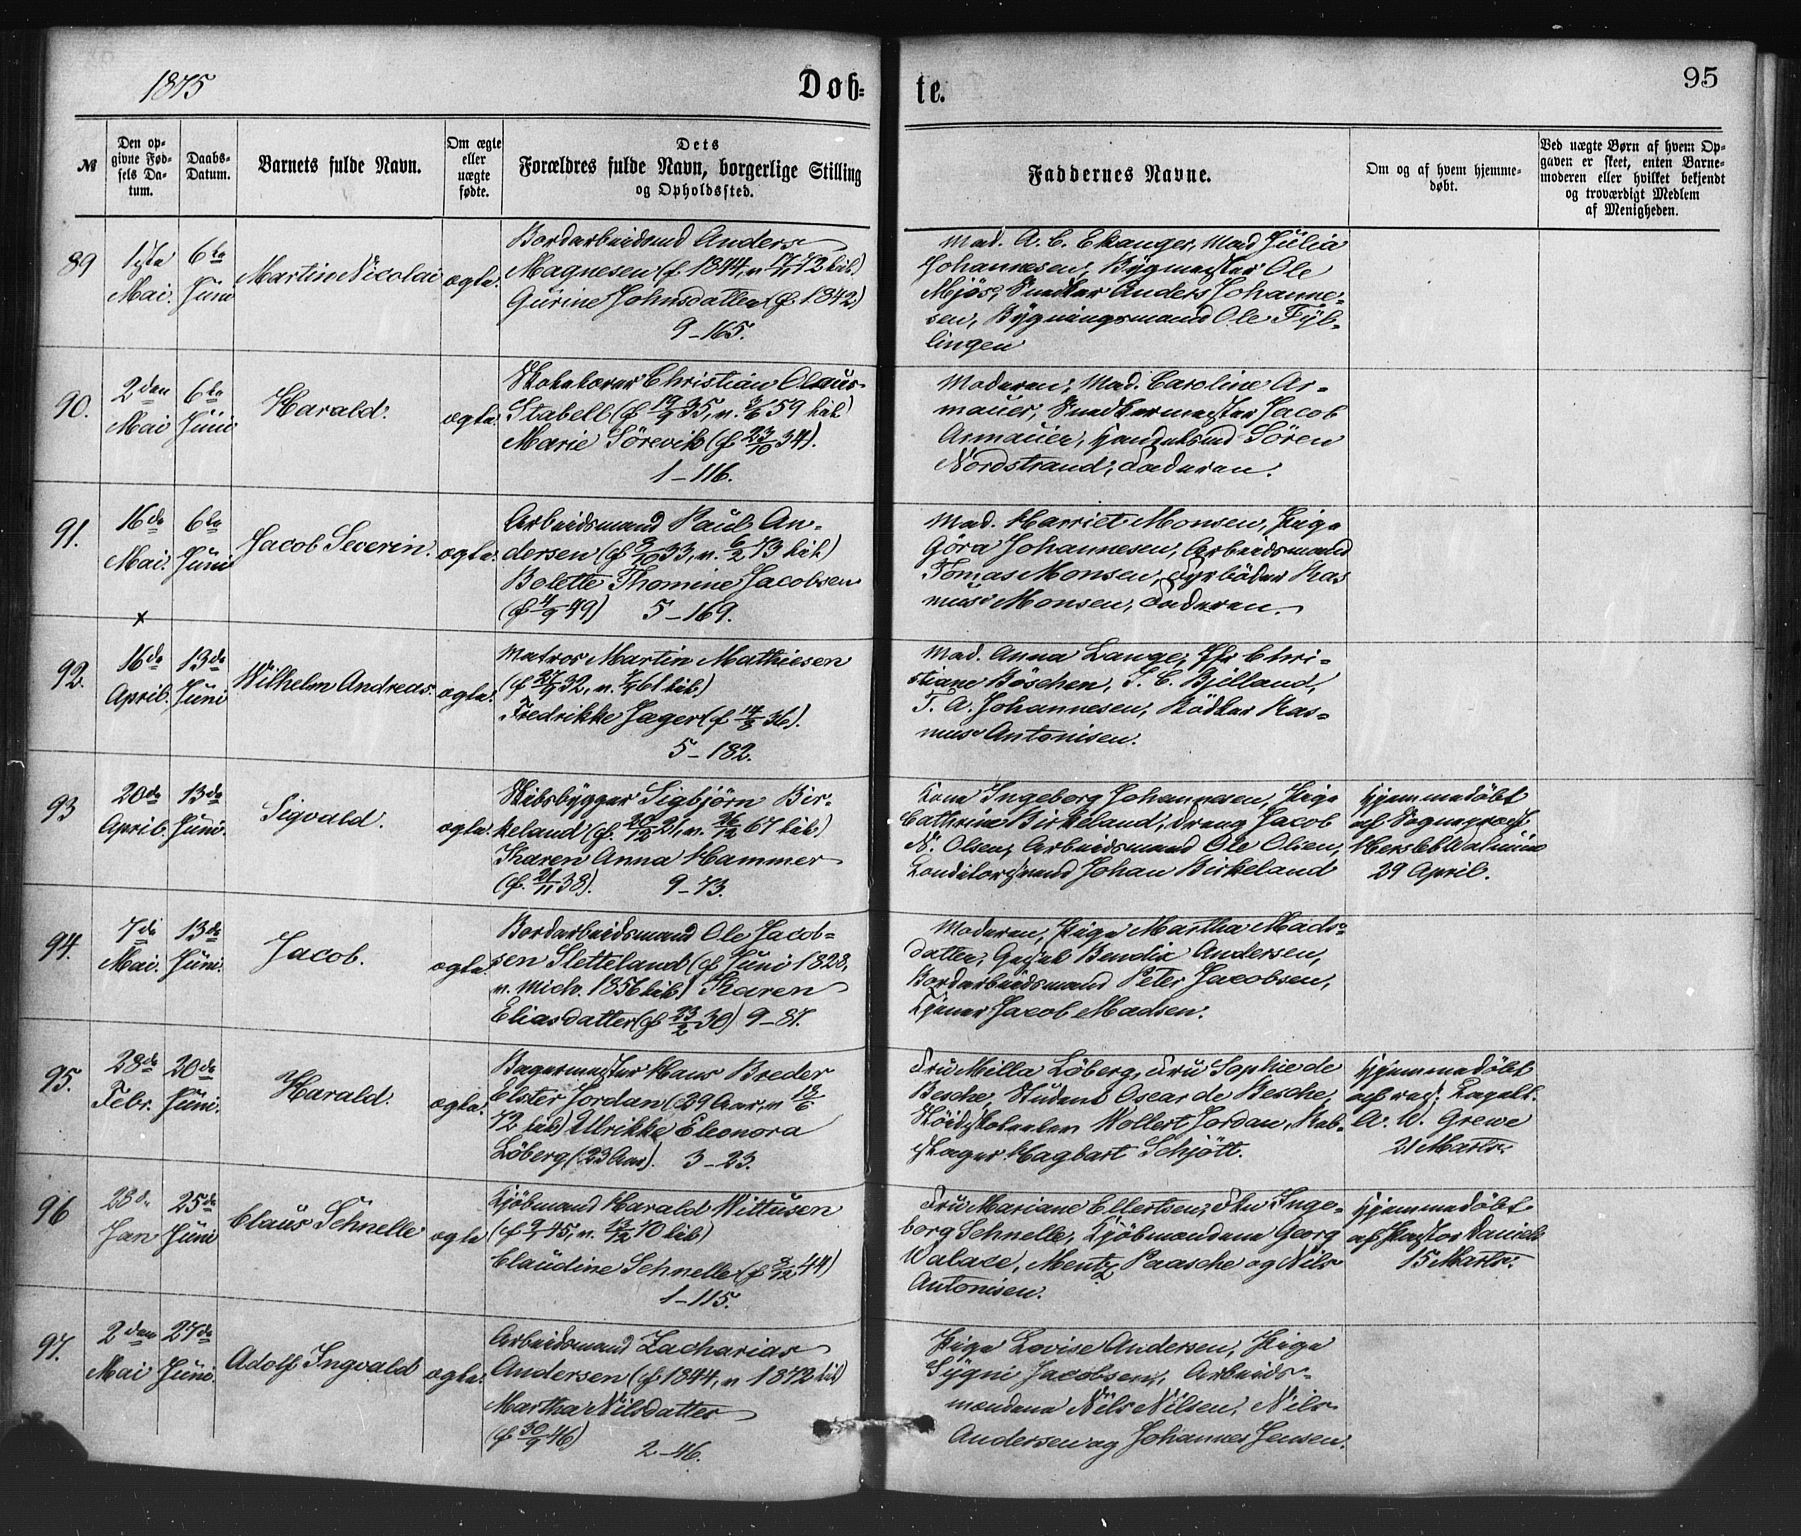 1875
Døb-
te.
95
№
Den op-
givne Fød-
sels Da-
tum.
Daabs-
Datum.
Barnets fulde Navn.
Om ægte
eller
uægte
fødte.
Dets
Forældres fulde Navn, borgerlige Stilling
og Opholdssted.
Faddernes Navne.
Om og af hvem hjemme-
døbt.
Ved uægte Børn af hvem Op-
gaven er skeet, enten Barne-
moderen eller hvilket bekjendt
og troværdigt Medlem
af Menigheden.
89
Mai.
6te
Juni
Martin Nicolai
ægte.
Bordarbeidsmd Anders
Magnesen (f. 1844, v. 72 här)
Gurine Johnsdatter (f. 1842)
9-165.
Mad. A. C. Ekanger, Mad Julia
Johannesen, Bygmester Ole
Mjøs, Snedker Anders Johanne-
sen, Bygningsmand Ole Fyl-
lingen
90.
2den
Mai
6te
Juni
Harald.
ægte.
Christian Olaus
Stabell (f. 19/9 35, v. 59 här)
Marie Sörevik (f. 23/10 34).
1-116.
Moderen, Mad. Caroline Ar-
mauer, Snedkermester Jacob
Armauer, Handelsmd Sören
Nordstrand, Faderen.
91.
16de
Mai.
6te
Juni
Jacob Severin.
ægte.
Arbeidsmand Paul An-
dersen (f. 33, v. 6/2 73 här)
Bolette Thomine Jacobsen
(f. 49) 5-169.
Mad. Harriet Monsen, Pige
Göra Johannesen, Arbeidsmand
Tomas Monsen, Fyrböder Ras
mus Monsen, Faderen.
x
92.
16de
April.
13de
Juni
Wilhelm Andreas.
ægte.
Matros Martin Mathiesen
(f. 32, v. 61 här)
Fredrikke Jæger (f. 36).
5-182.
Mad. Anna Lange, Chri-
stiane Böschen, S. C. Bjelland,
T. A. Johannesen, Bödker Ras-
mus Antonisen.
93
20de
April.
13de
Juni.
Sigvald.
ægte.
Skibsbygger Sigbjörn Bir-
keland (f. 21, v. 26/12 67 här)
Karen Anna Hammer
(f. 21/11 38). 9-73.
Kone Ingeborg Johannesen, Pige
Cathrine Birkeland, Dreng Jacob
N. Olsen, Arbeidsmand Ole Olsen,
Johan Birkeland
Hjemmedöbt
af Sogneprest
Hersleb Walnum
29 April.
94.
7de
Mai.
13de
Juni.
Jacob.
ægte.
Bordarbeidsmand Ole Jacob-
sen Sletteland (f. Juni 1828,
v. Mich. 1856 här) Karen
Eliasdatter (f. 23/2 30) 9-87.
Moderen, Pige Martha Mads-
datter, Bendix Andersen,
Bordarbeidsmand Peter Jacobsen,
Jacob Madsen.
95.
28de
Febr.
20de
Juni.
Harald.
ægte.
Bagermester Hans Breder
Elster Jordan (29 Aar, v.
72 här) Ulrikke Eleonora
Löberg (23 Aar). 3-23.
Fru Milla Löberg, Fru Sophie de
Besche, Student Oscar de Besche,
Wollert Jordan,
Hagbart Schjött.
Hjemmedöbt
af Kapell.
A. W. Grewe
21 Marts.
96
Jan
25de
Juni
Claus Schnelle
ægte
Kjöbmand Harald Wittusen
(f. 45, v. 70 här)
Claudine Schnelle (f. 44)
1-115.
Fru Mariane Ellertsen, Inge-
borg Schnelle, Kjöbmændene Georg
Walace, Mentz Paasche og Nils
Antonisen.
Hjemmedöbt
af Pastor
15 Marts.
97.
2den
Mai
27de
Juni.
Adolf Ingvald
ægte.
Arbeidsmand Zacharias
Andersen (f. 1844, v. 1872 här)
Martha Nilsdatter
(f. 30/9 46) 2-46.
Pige Lovise Andersen, Pige
Sygni Jacobsen, Arbeids-
mændene Nils Nilsen, Nils
Andersen og Johannes Jensen.